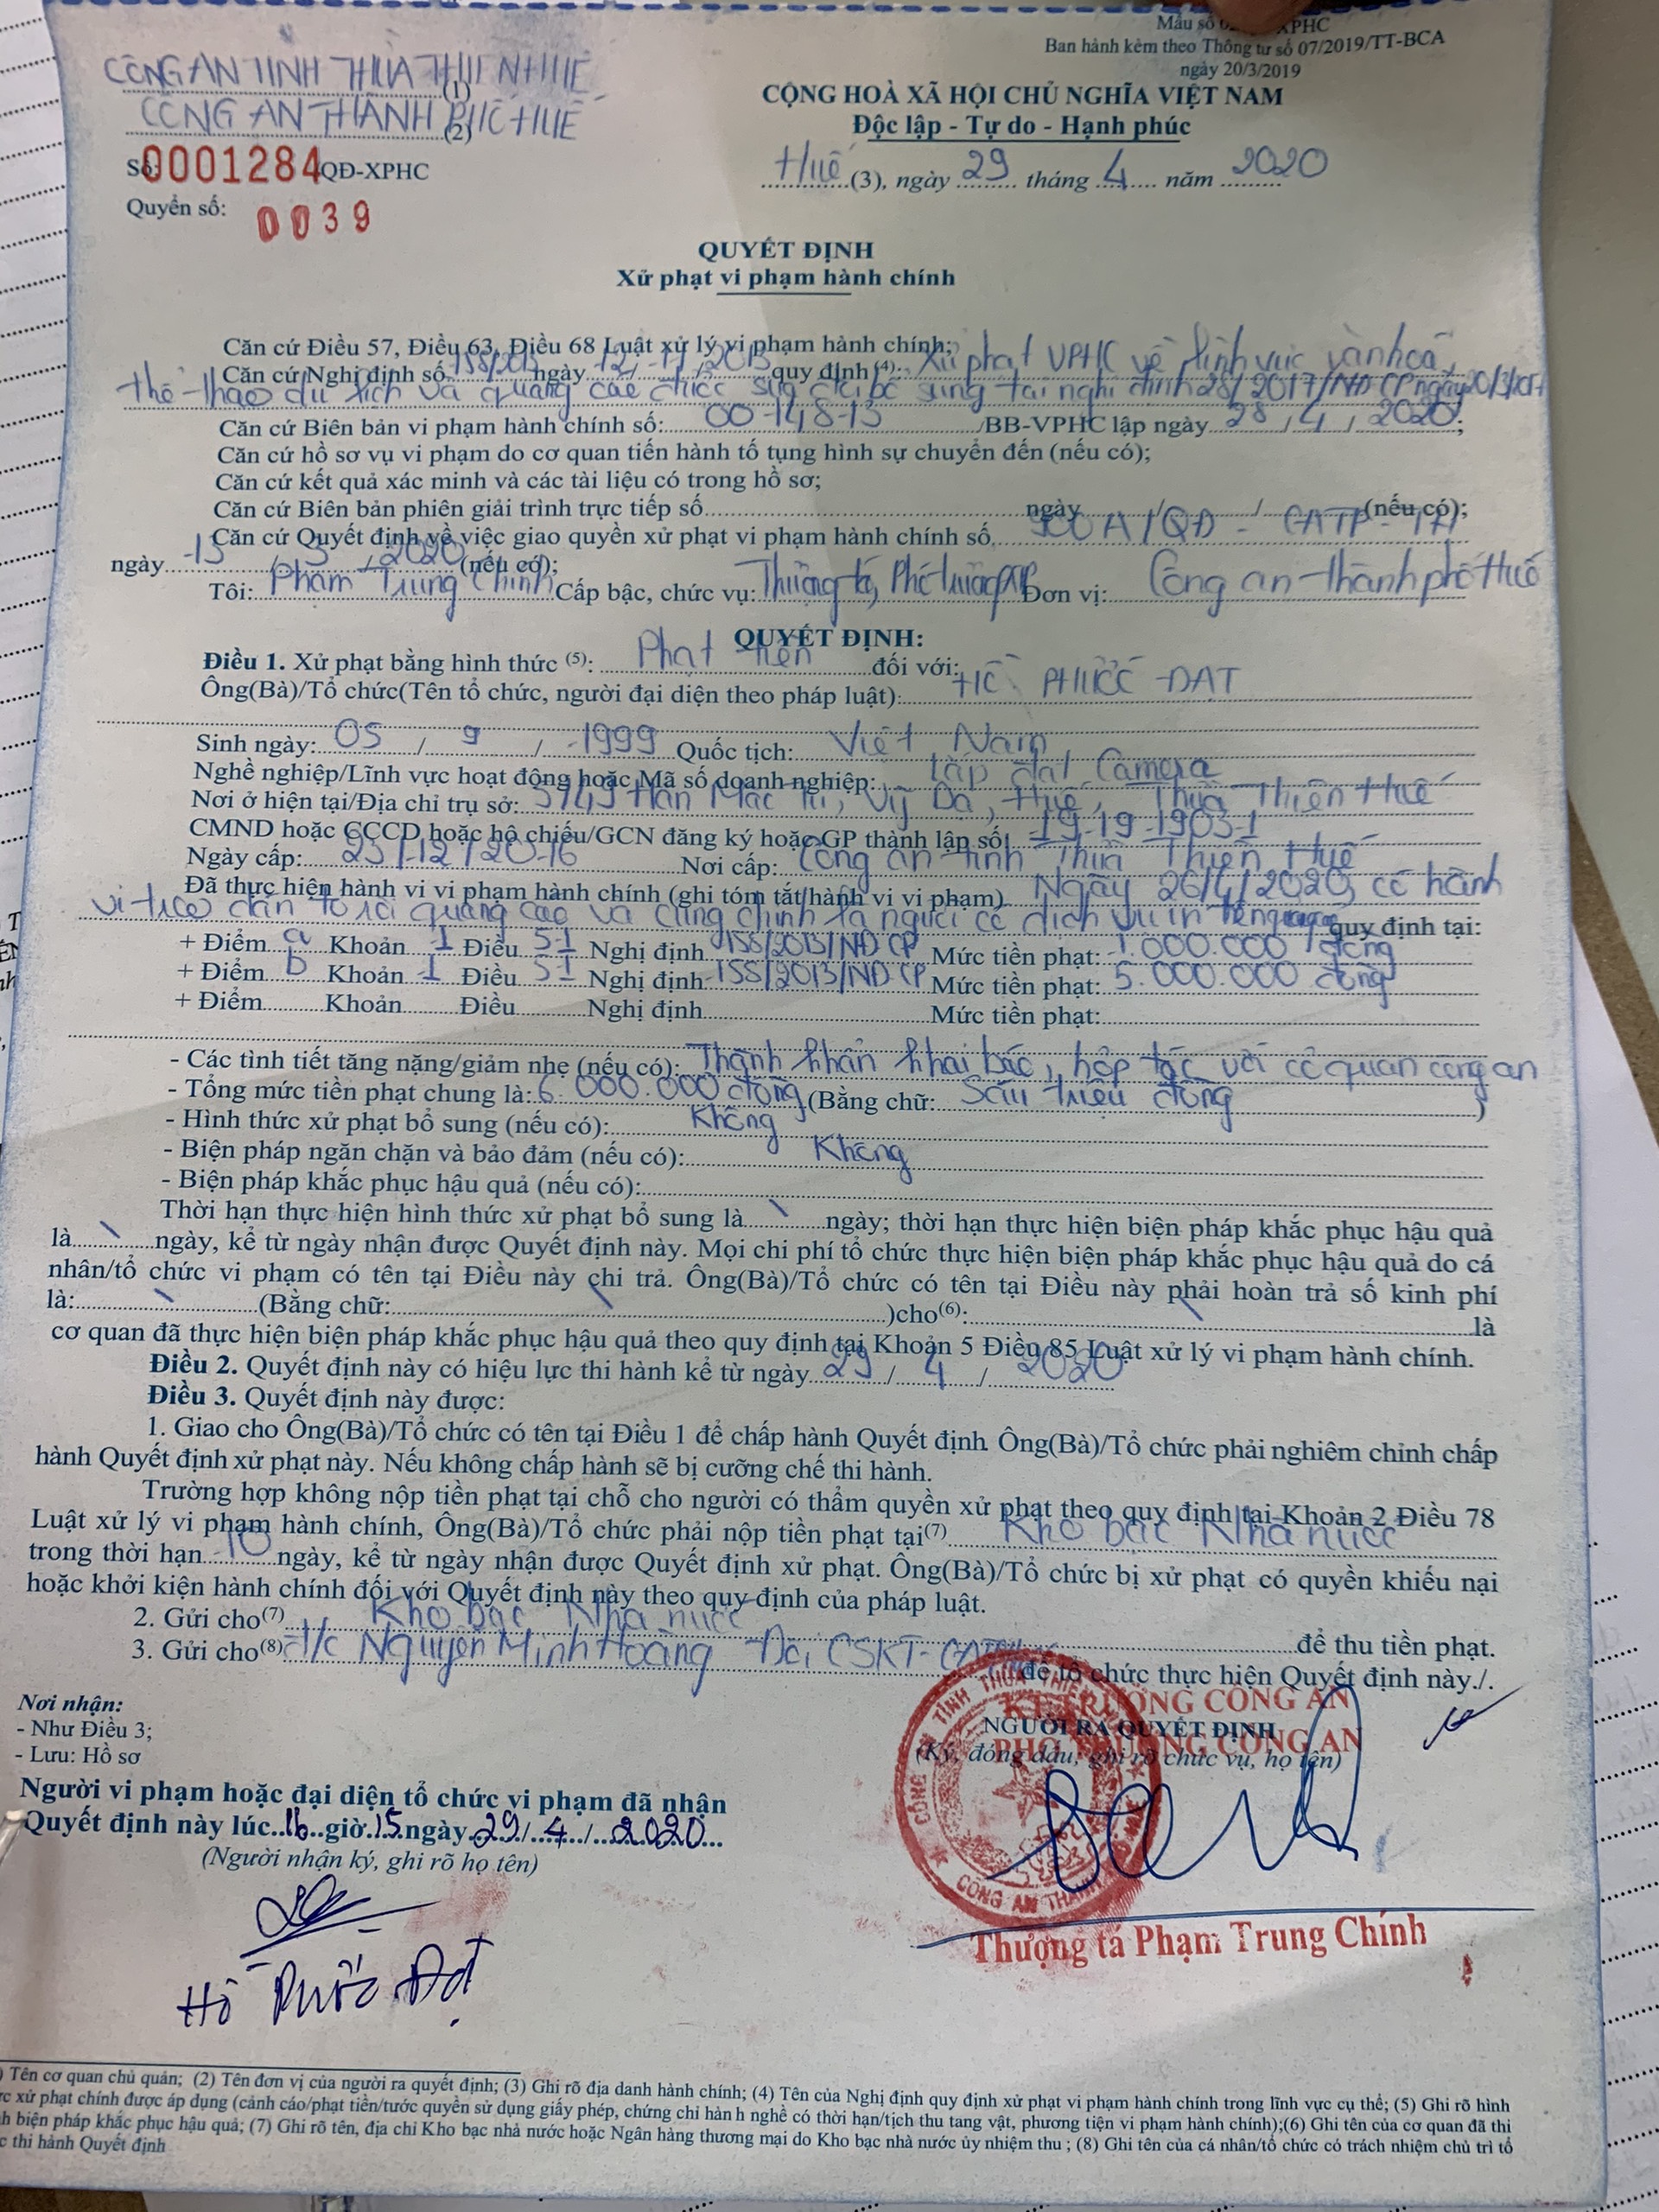 Mẫu số XPHC
Ban hành kèm theo Thông tư số 07/2019/TT-BCA
ngày 20/3/2019
CÔNG AN TỈNH THỪA THIÊN HUẾ (1)
CÔNG AN THÀNH PHỐ HUẾ (2)
CỘNG HOÀ XÃ HỘI CHỦ NGHĨA VIỆT NAM
Độc lập - Tự do - Hạnh phúc
Số: 0001284 QĐ-XPHC
Huế (3), ngày 29 tháng 4 năm 2020
Quyển số: 0039
QUYẾT ĐỊNH
Xử phạt vi phạm hành chính
Căn cứ Điều 57, Điều 63, Điều 68 Luật xử lý vi phạm hành chính;
Căn cứ Nghị định số 158/2013 ngày 12/11/2013 quy định (4): Xử phạt VPHC về lĩnh vực văn hoá,
thể thao du lịch và quảng cáo được sửa đổi bổ sung tại nghị định 28/2017/NĐ CP ngày 20/3/2017
Căn cứ Biên bản vi phạm hành chính số: 0014813 /BB-VPHC lập ngày 28/4/2020;
Căn cứ hồ sơ vụ vi phạm do cơ quan tiến hành tố tụng hình sự chuyển đến (nếu có);
Căn cứ kết quả xác minh và các tài liệu có trong hồ sơ;
Căn cứ Biên bản phiên giải trình trực tiếp số ngày / / (nếu có);
Căn cứ Quyết định về việc giao quyền xử phạt vi phạm hành chính số 900A/QĐ - CATP - TH
ngày 13/3/2020 (nếu có);
Tôi: Phạm Trung Chính Cấp bậc, chức vụ: Thượng tá, Phó trưởng CATP Đơn vị: Công an thành phố Huế
QUYẾT ĐỊNH:
Điều 1. Xử phạt bằng hình thức (5): Phạt tiền đối với:
Ông(Bà)/Tổ chức(Tên tổ chức, người đại diện theo pháp luật): HỒ PHƯỚC ĐẠT
Sinh ngày: 05 / 9 / 1999 Quốc tịch: Việt Nam
Nghề nghiệp/Lĩnh vực hoạt động hoặc Mã số doanh nghiệp: Lắp đặt Camera
Nơi ở hiện tại/Địa chỉ trụ sở: 5/45 Hàn Mặc Tử, Vỹ Dạ, Huế, Thừa Thiên Huế
CMND hoặc CCCD hoặc hộ chiếu/GCN đăng ký hoặc GP thành lập số: 191919031
Ngày cấp: 23/12/2016 Nơi cấp: Công an tỉnh Thừa Thiên Huế
Đã thực hiện hành vi vi phạm hành chính (ghi tóm tắt/hành vi vi phạm) Ngày 26/4/2020, có hành
vi treo dán tờ rơi quảng cáo và cũng chính là người có dịch vụ in quy định tại:
+ Điểm a Khoản 1 Điều 51 Nghị định 158/2013/NĐ CP Mức tiền phạt: 1.000.000 đồng
+ Điểm b Khoản 1 Điều 51 Nghị định 158/2013/NĐ CP Mức tiền phạt: 5.000.000 đồng
+ Điểm Khoản Điều Nghị định Mức tiền phạt:
- Các tình tiết tăng nặng/giảm nhẹ (nếu có): Thành khẩn khai báo, hợp tác với cơ quan công an
- Tổng mức tiền phạt chung là: 6.000.000 đồng (Bằng chữ: Sáu triệu đồng )
- Hình thức xử phạt bổ sung (nếu có): Không
- Biện pháp ngăn chặn và bảo đảm (nếu có): Không
- Biện pháp khắc phục hậu quả (nếu có):
Thời hạn thực hiện hình thức xử phạt bổ sung là \ ngày; thời hạn thực hiện biện pháp khắc phục hậu quả
là \ ngày, kể từ ngày nhận được Quyết định này. Mọi chi phí tổ chức thực hiện biện pháp khắc phục hậu quả do cá
nhân/tổ chức vi phạm có tên tại Điều này chi trả. Ông(Bà)/Tổ chức có tên tại Điều này phải hoàn trả số kinh phí
là: \ (Bằng chữ: \ )cho(6): \ là
cơ quan đã thực hiện biện pháp khắc phục hậu quả theo quy định tại Khoản 5 Điều 85 Luật xử lý vi phạm hành chính.
Điều 2. Quyết định này có hiệu lực thi hành kể từ ngày 29 / 4 / 2020
Điều 3. Quyết định này được:
1. Giao cho Ông(Bà)/Tổ chức có tên tại Điều 1 để chấp hành Quyết định. Ông(Bà)/Tổ chức phải nghiêm chỉnh chấp
hành Quyết định xử phạt này. Nếu không chấp hành sẽ bị cưỡng chế thi hành.
Trường hợp không nộp tiền phạt tại chỗ cho người có thẩm quyền xử phạt theo quy định tại Khoản 2 Điều 78
Luật xử lý vi phạm hành chính, Ông(Bà)/Tổ chức phải nộp tiền phạt tại(7) Kho bạc Nhà nước
trong thời hạn 10 ngày, kể từ ngày nhận được Quyết định xử phạt. Ông(Bà)/Tổ chức bị xử phạt có quyền khiếu nại
hoặc khởi kiện hành chính đối với Quyết định này theo quy định của pháp luật.
2. Gửi cho(7) Kho bạc Nhà nước để thu tiền phạt.
3. Gửi cho(8) đ/c Nguyễn Minh Hoàng Đội CSKT-CATP để tổ chức thực hiện Quyết định này./.
Nơi nhận:
- Như Điều 3;
- Lưu: Hồ sơ
KT. TRƯỞNG CÔNG AN
NGƯỜI RA QUYẾT ĐỊNH
PHÓ TRƯỞNG CÔNG AN
(Ký, đóng dấu, ghi rõ chức vụ, họ tên)
Người vi phạm hoặc đại diện tổ chức vi phạm đã nhận
Quyết định này lúc 16 giờ 15 ngày 29/4/2020
(Người nhận ký, ghi rõ họ tên)
CÔNG AN TỈNH THỪA THIÊN
CÔNG AN THÀNH
Thượng tá Phạm Trung Chính
Hồ Phước Đạt
) Tên cơ quan chủ quản; (2) Tên đơn vị của người ra quyết định; (3) Ghi rõ địa danh hành chính; (4) Tên của Nghị định quy định xử phạt vi phạm hành chính trong lĩnh vực cụ thể; (5) Ghi rõ hình
xử phạt chính được áp dụng (cảnh cáo/phạt tiền/tước quyền sử dụng giấy phép, chứng chỉ hành nghề có thời hạn/tịch thu tang vật, phương tiện vi phạm hành chính);(6) Ghi tên của cơ quan đã thi
biện pháp khắc phục hậu quả; (7) Ghi rõ tên, địa chỉ Kho bạc nhà nước hoặc Ngân hàng thương mại do Kho bạc nhà nước ủy nhiệm thu ; (8) Ghi tên của cá nhân/tổ chức có trách nhiệm chủ trì tổ
thi hành Quyết định